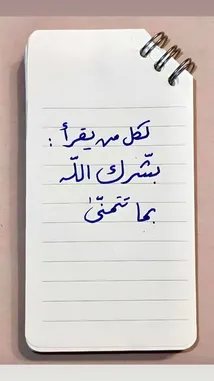 لكل من يقرأ :
بشّرك اللّه
بما تتمنّىٰ